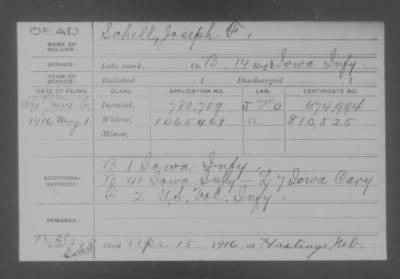 DEAD
NAME OF SOLDIER: Schell, Joseph F.
SERVICE: Late rank, Co B, 14 Reg't Iowa Infy.
TERM OF SERVICE: Enlisted , 1 Discharged , 1
DATE OF FILING. CLASS. APPLICATION NO. LAW. CERTIFICATE NO.
1890 June 6 Invalid, 780,759 J O 674,994
1916 May 1 Widow, 1065469 a 810,525
Minor,
ADDITIONAL SERVICES:
B 1 Iowa Infy
B 41 Iowa Infy L 7 Iowa Cavy
F 2 U.S. Vol. Infy.
REMARKS:
Died Apr 15, 1916, at Hastings, Neb.